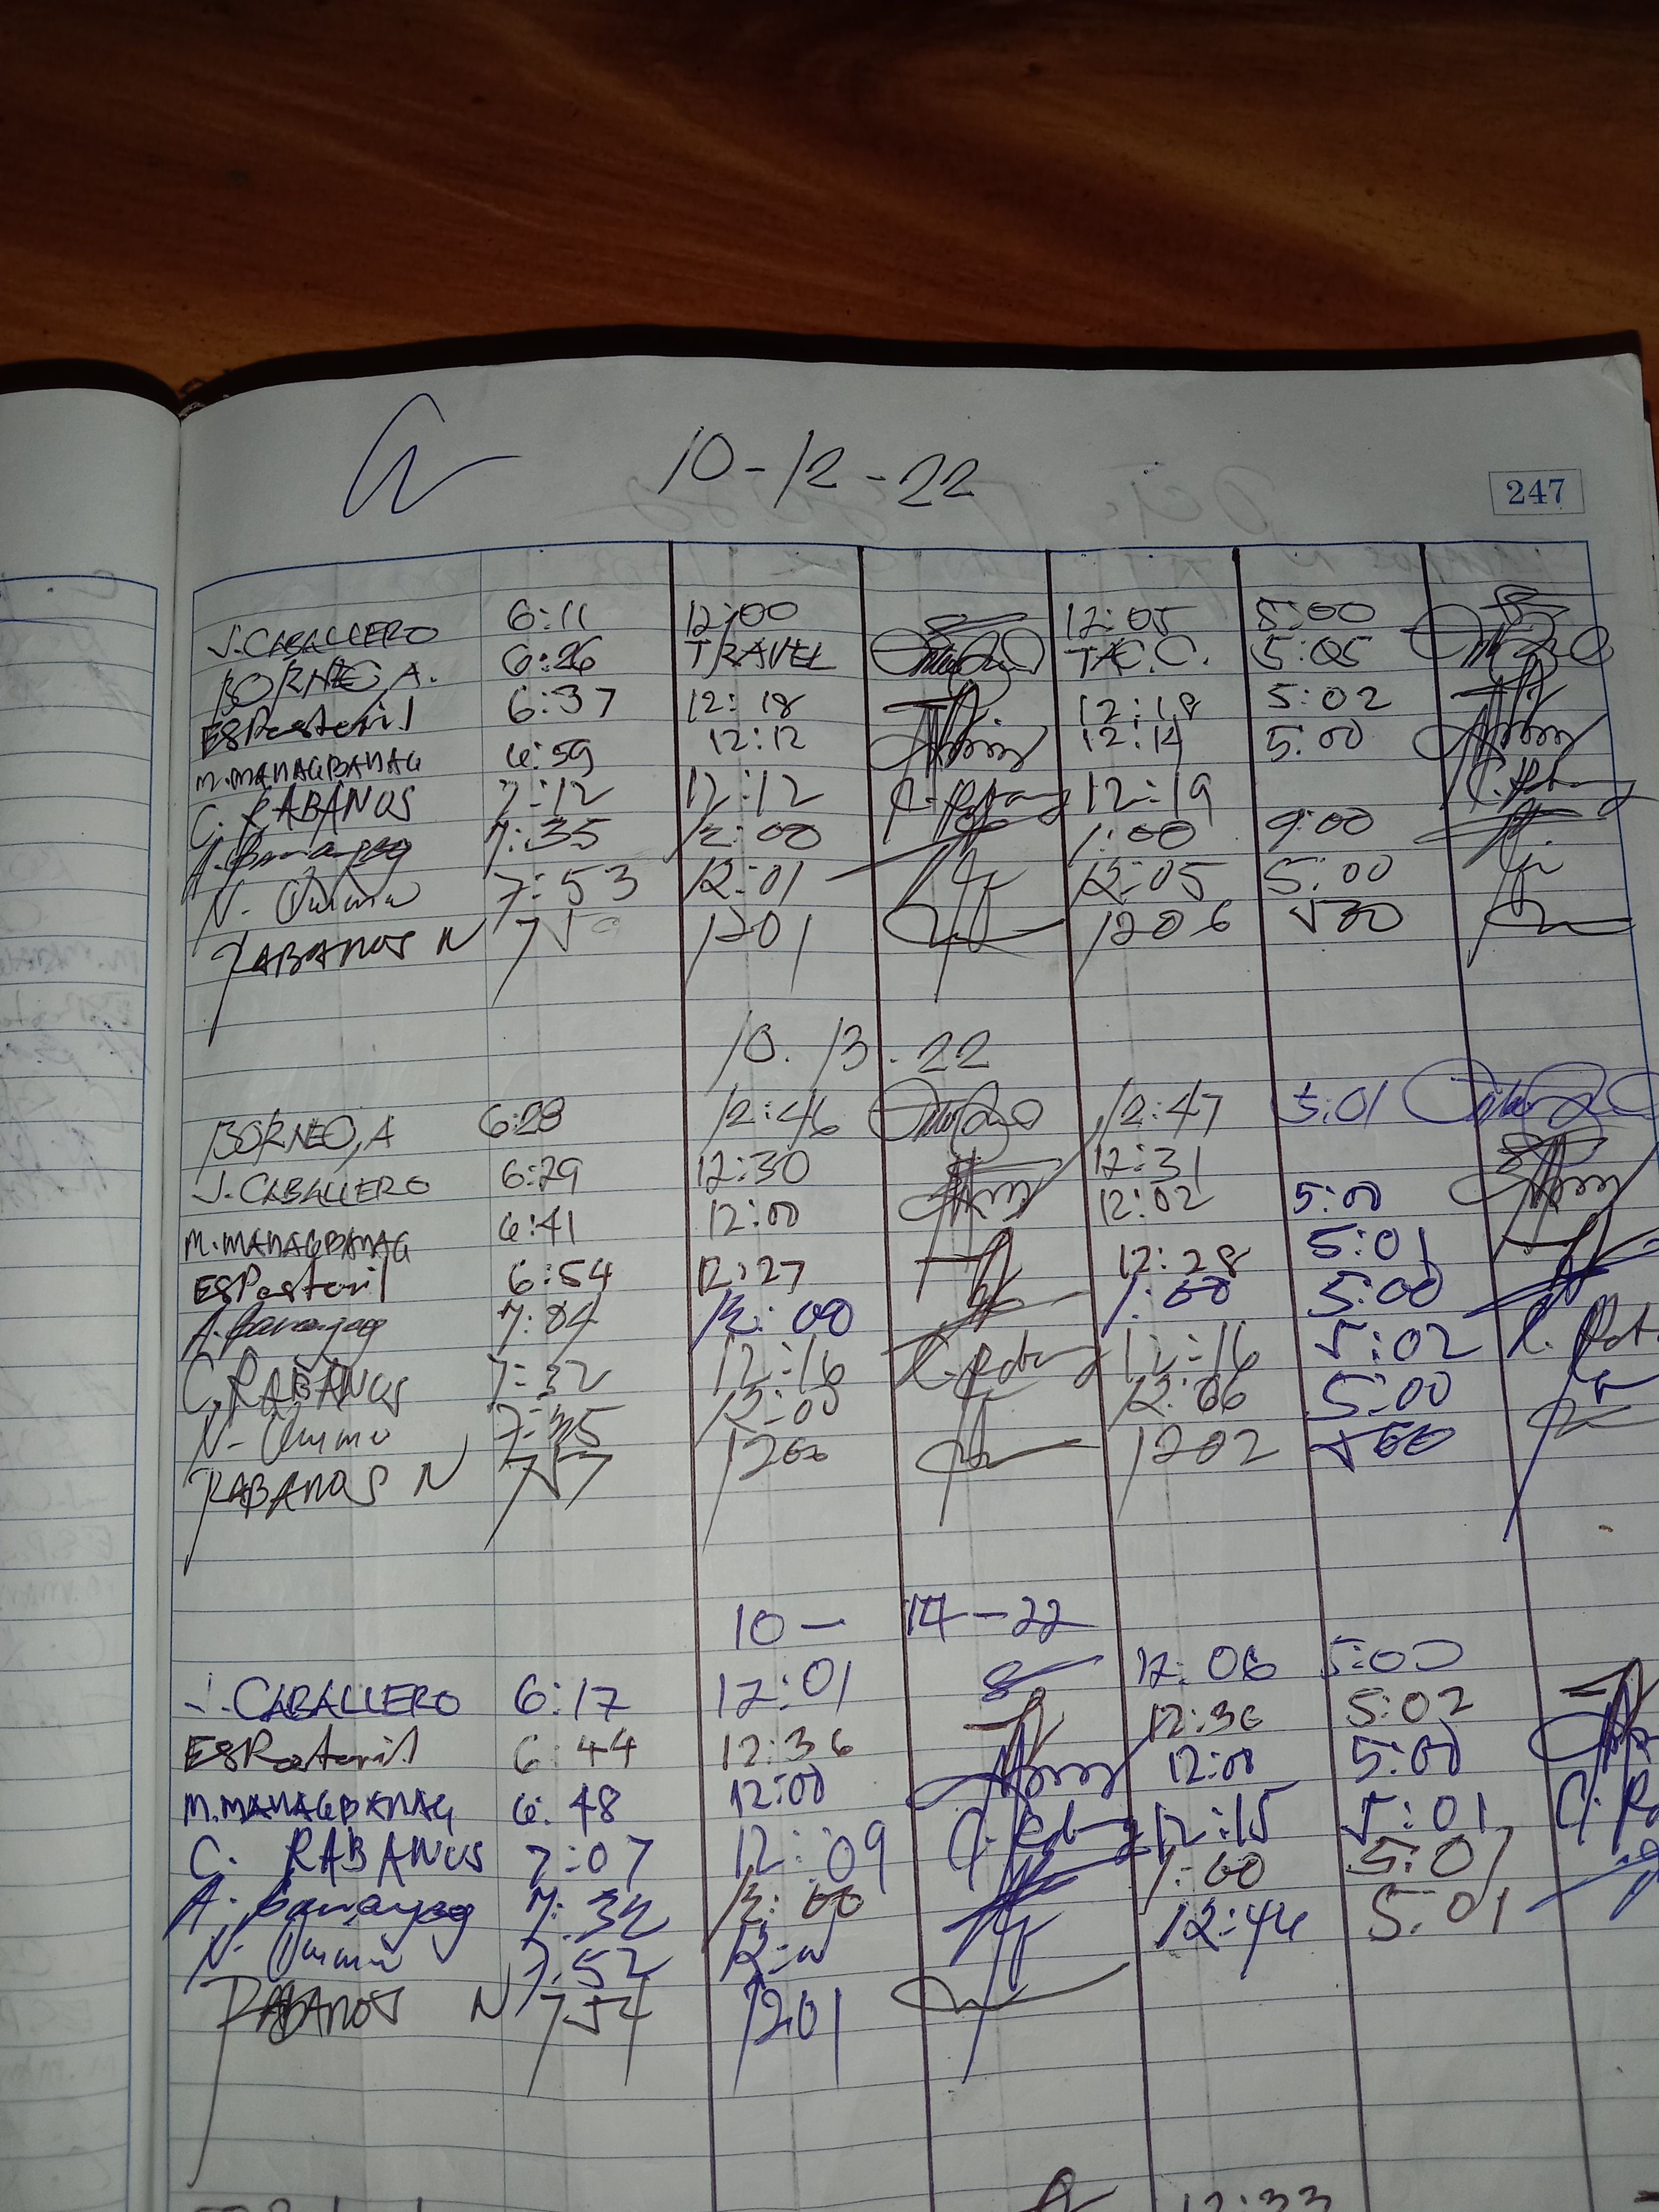 10-12-22
247
J. CABALLERO 6:11 12:00 12:05 5:00
BORNEO, A. 6:26 TRAVEL TAC.C. 5:05
ESPastoril 6:37 12:18 12:18 5:02
M. MANAGBANAG 6:59 12:12 12:14 5:00
C. RABANOS 7:12 12:12 12:19
A. 7:35 12:00 1:00 9:00
N. 7:53 12:01 12:05 5:00
RABANOS N 1201 1206 530
10.13.22
BORNEO, A 6:28 12:46 12:47 5:01
J. CABALLERO 6:29 12:30 12:31
M. MANAGBANAG 6:41 12:00 12:02 5:00
ESPastoril 6:54 12:27 12:28 5:01
A. 7:04 12:00 1:00 5:00
C. RABANOS 7:32 12:16 12:16 5:02
N. 7:35 12:00 5:00
RABANOS N 757 1200 1202 500
10-14-22
J. CABALLERO 6:17 12:01 12:06 5:00
ESPastoril 6:44 12:36 12:36 5:02
M. MANAGBANAG 6:48 12:00 12:00 5:00
C. RABANOS 7:07 12:09 12:15 5:01
A. 7:32 12:00 1:00 5:01
N. 7:52 12:44 5:01
RABANOS N 754 1201
12:33